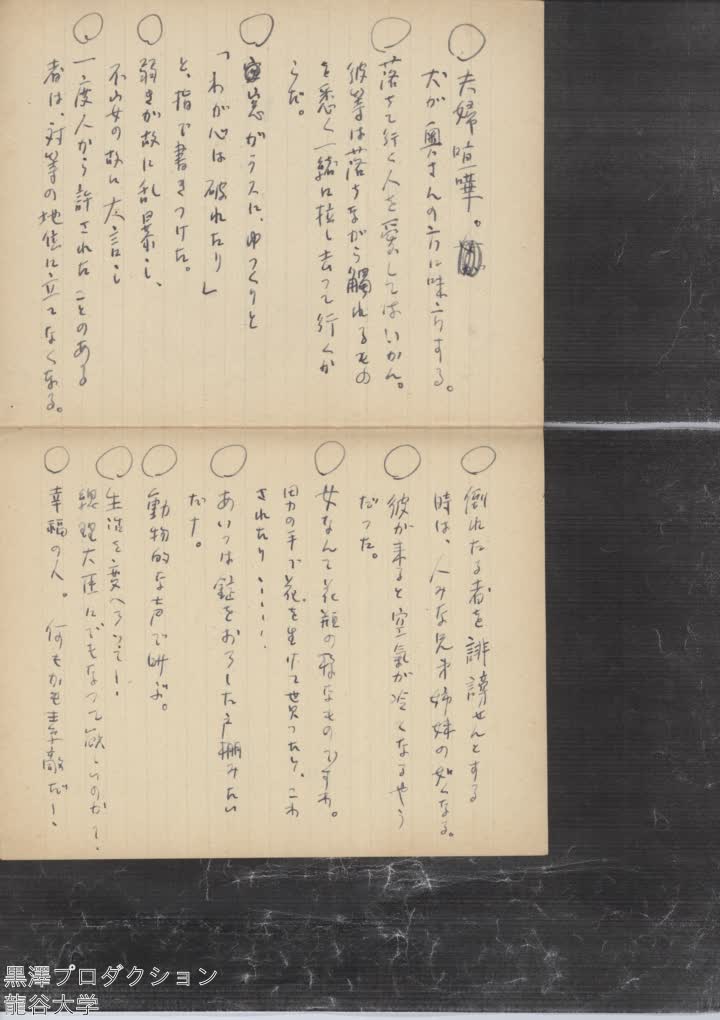 ○夫婦喧嘩。
犬が奥さんの方に味方する。
○落ちて行く人を愛してはいかん。
彼等は落ちながら觸れるもの
を悉く一緒に拉し去つて行くか
らだ。
○窓ガラスに、ゆつくりと
「わが心は破れたり」
と、指で書きつけた。
○弱きが故に乱暴し、
不山女の故に大言し
○一度人から許されたことのある
者は、対等の地位に立てなくなる。
○倒れたる者を誹謗せんとする
時は、人みな兄弟姉妹の如くなる。
○彼が来ると空氣が冷くなるやう
だつた。
○女なんて花瓶の様なものですわ。
男の手で花を生けて貰つたり、こわ
されたり・・・・・・
○あいつは錠をおろした戸棚みたい
だナ。
○動物的な声で叫ぶ。
○生活を変へろつて!
総理大臣にでもなつて欲しいのかね、
○幸福の人。何もかも素敵だ!
黒澤プロダクション
龍谷大学